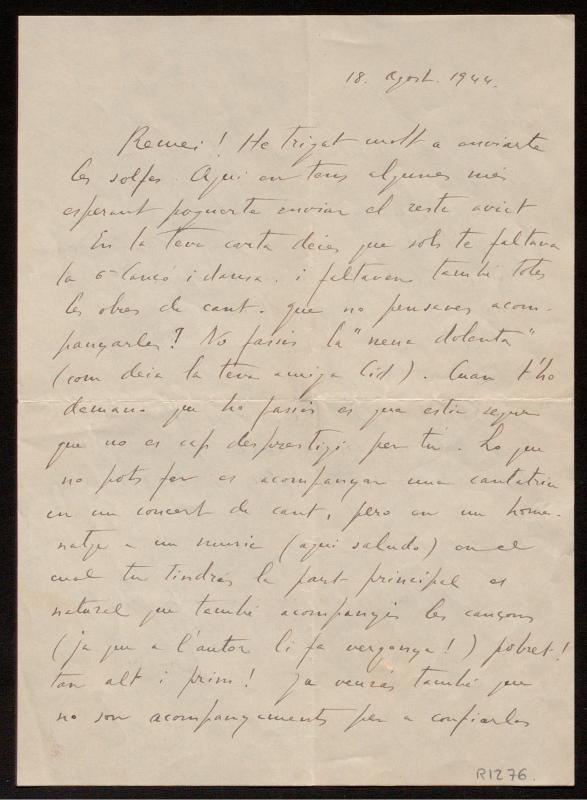 18. Agost. 1944.
Remei! He trigat molt a enviarte
les solfes. Aqui en tens algunes més
esperant poguerte enviar el reste aviat
En la teva carta deies que sols te faltava
la 6ª Cançó i dansa. i faltaven també totes
les obres de cant. que no pensaves acom-
panyarles? No fassis la "nena dolenta"
(com deia la teva amiga Cid). Cuan t'ho
demano que ho fassis es que estic segur
que no es cap desprestigi per tú. Lo que
no pots fer es acompanyar una cantatriu
en un concert de cant, pero en un home-
natge a un music (aqui saludo) en el
cual tu tindrás la part principal es
naturel que també acompanyis les cançons
(ja que a l'autor li fa vergonya!) pobret!
tan alt i prim! Ja veurás també que
no son acompanyaments per a confiarlos
R1276.